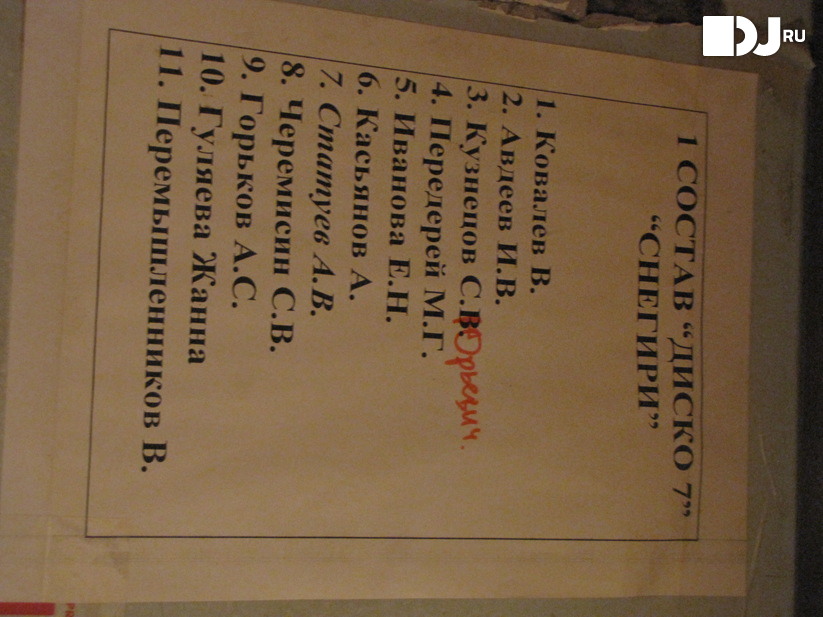 DJ.RU
1 СОСТАВ “ДИСКО 7”
“СНЕГИРИ”
1. Ковалев В.
2. Авдеев И.В.
3. Кузнецов С.В Юрьевич.
4. Передерей М.Г.
5. Иванова Е.Н.
6. Касьянов А.
7. Статуев А.В.
8. Черемисин С.В.
9. Горьков А.С.
10. Гуляева Жанна
11. Перемышленников В.